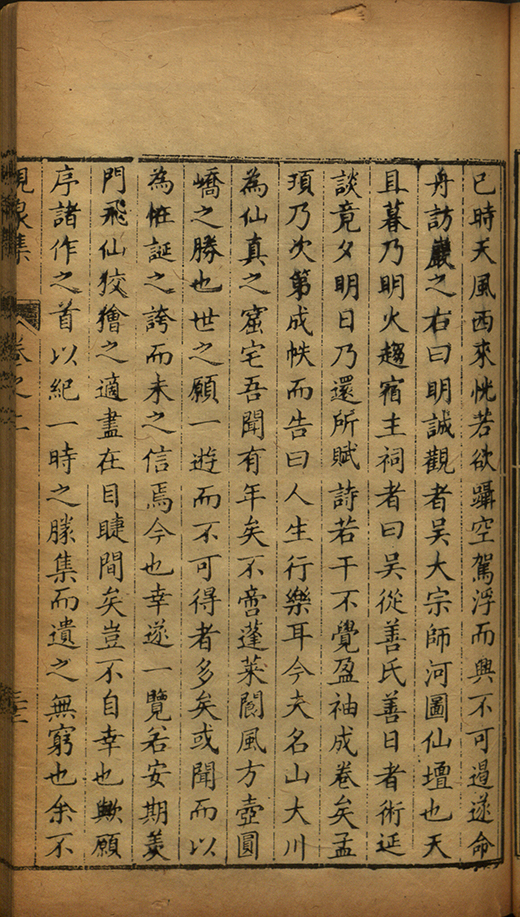 已時天風西來恍若欲躡空駕浮而興不可遏遂命
舟訪巖之右曰明誠觀者吳大宗師河圖仙壇也天
且暮乃明火趨宿主祠者曰吳從善氏善日者術延
談竟夕明日乃還所賦詩若干不覺盈袖成卷矣孟
頊乃次第成帙而告曰人生行樂耳今夫名山大川
為仙真之窟宅吾聞有年矣不啻蓬萊閬風方壺圓
嶠之勝也世之願一遊而不可得者多矣或聞而以
為恠誕之誇而未之信焉今也幸遂一覽若安期羨
門飛仙狡獪之適盡在目睫間矣豈不自幸也歟願
序諸作之首以紀一時之勝集而遺之無窮也余不
峴泉集 卷之二 三十三